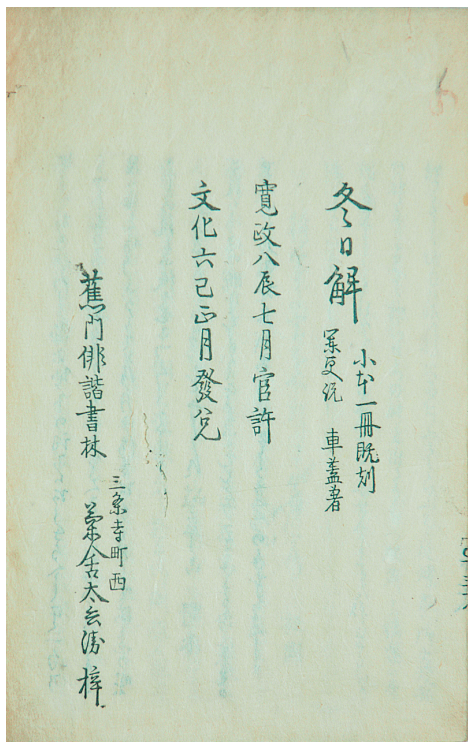 冬日解
小本一冊既刻
闌更説 車蓋著
寛政八辰七月官許
文化六巳正月發兌
蕉門俳諧書林
三条寺町西
菊舎太兵衛 梓